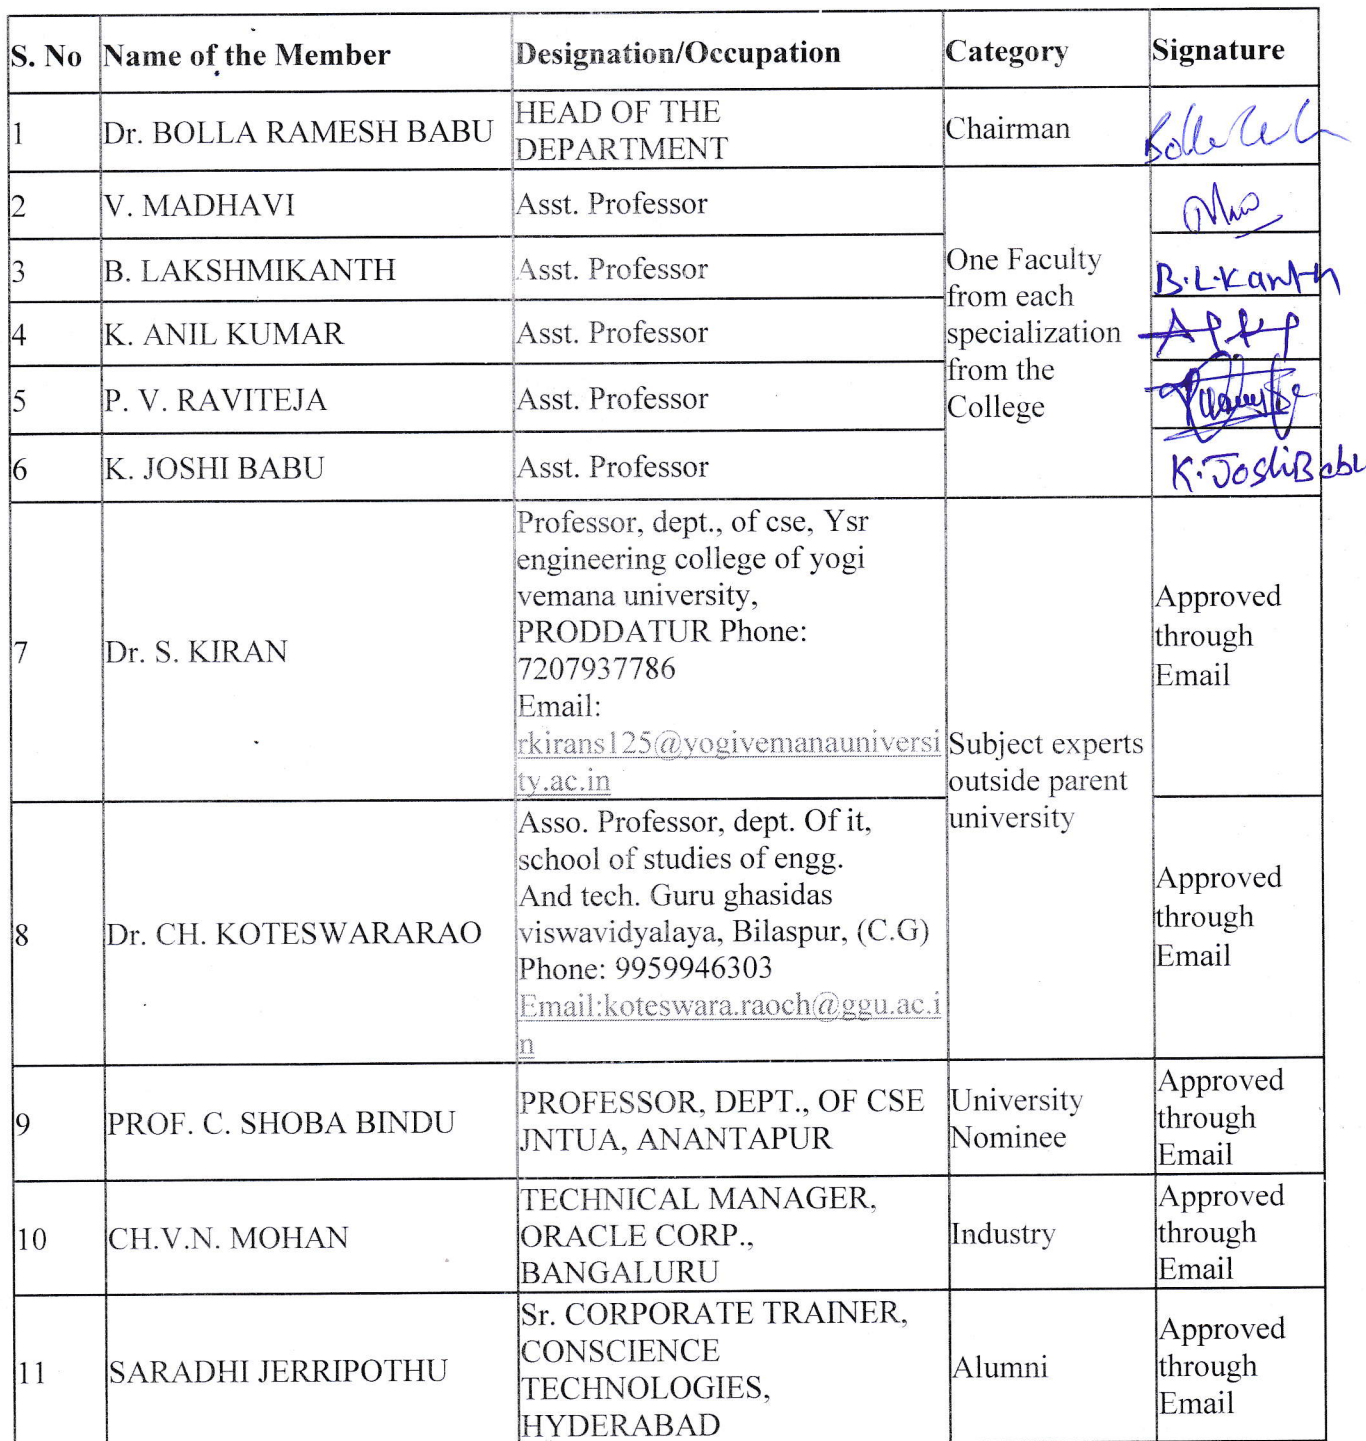 S. No Name of the Member Designation/Occupation Category Signature
1 Dr. BOLLA RAMESH BABU HEAD OF THE
DEPARTMENT Chairman
2 V. MADHAVI Asst. Professor
3 B. LAKSHMIKANTH Asst. Professor B.L.Kanth
4 K. ANIL KUMAR Asst. Professor
5 P. V. RAVITEJA Asst. Professor
6 K. JOSHI BABU Asst. Professor K. Joshi Babu
One Faculty
from each
specialization
from the
College
7 Dr. S. KIRAN
Professor, dept., of cse, Ysr
engineering college of yogi
vemana university,
PRODDATUR Phone:
7207937786
Email:
rkirans125@yogivemanauniversi
ty.ac.in
Approved
through
Email
Subject experts
outside parent
university
8 Dr. CH. KOTESWARARAO
Asso. Professor, dept. Of it,
school of studies of engg.
And tech. Guru ghasidas
viswavidyalaya, Bilaspur, (C.G)
Phone: 9959946303
Email:koteswara.raoch@ggu.ac.i
n
Approved
through
Email
9 PROF. C. SHOBA BINDU
PROFESSOR, DEPT., OF CSE
JNTUA, ANANTAPUR
University
Nominee
Approved
through
Email
10 CH.V.N. MOHAN
TECHNICAL MANAGER,
ORACLE CORP.,
BANGALURU
Industry
Approved
through
Email
11 SARADHI JERRIPOTHU
Sr. CORPORATE TRAINER,
CONSCIENCE
TECHNOLOGIES,
HYDERABAD
Alumni
Approved
through
Email